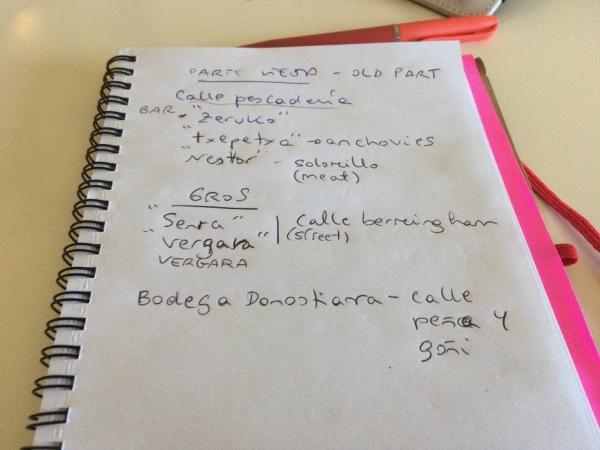 PARTE VIEJA - OLD PART
Calle pescadería
BAR - "Zeruko"
"txepetxa" → anchovies
"Nestor" - solomillo
(meat)
GROS
"Senra" | calle bermingham
"vergara" (street)
VERGARA
Bodega Donostiarra - calle
peña y
goñi